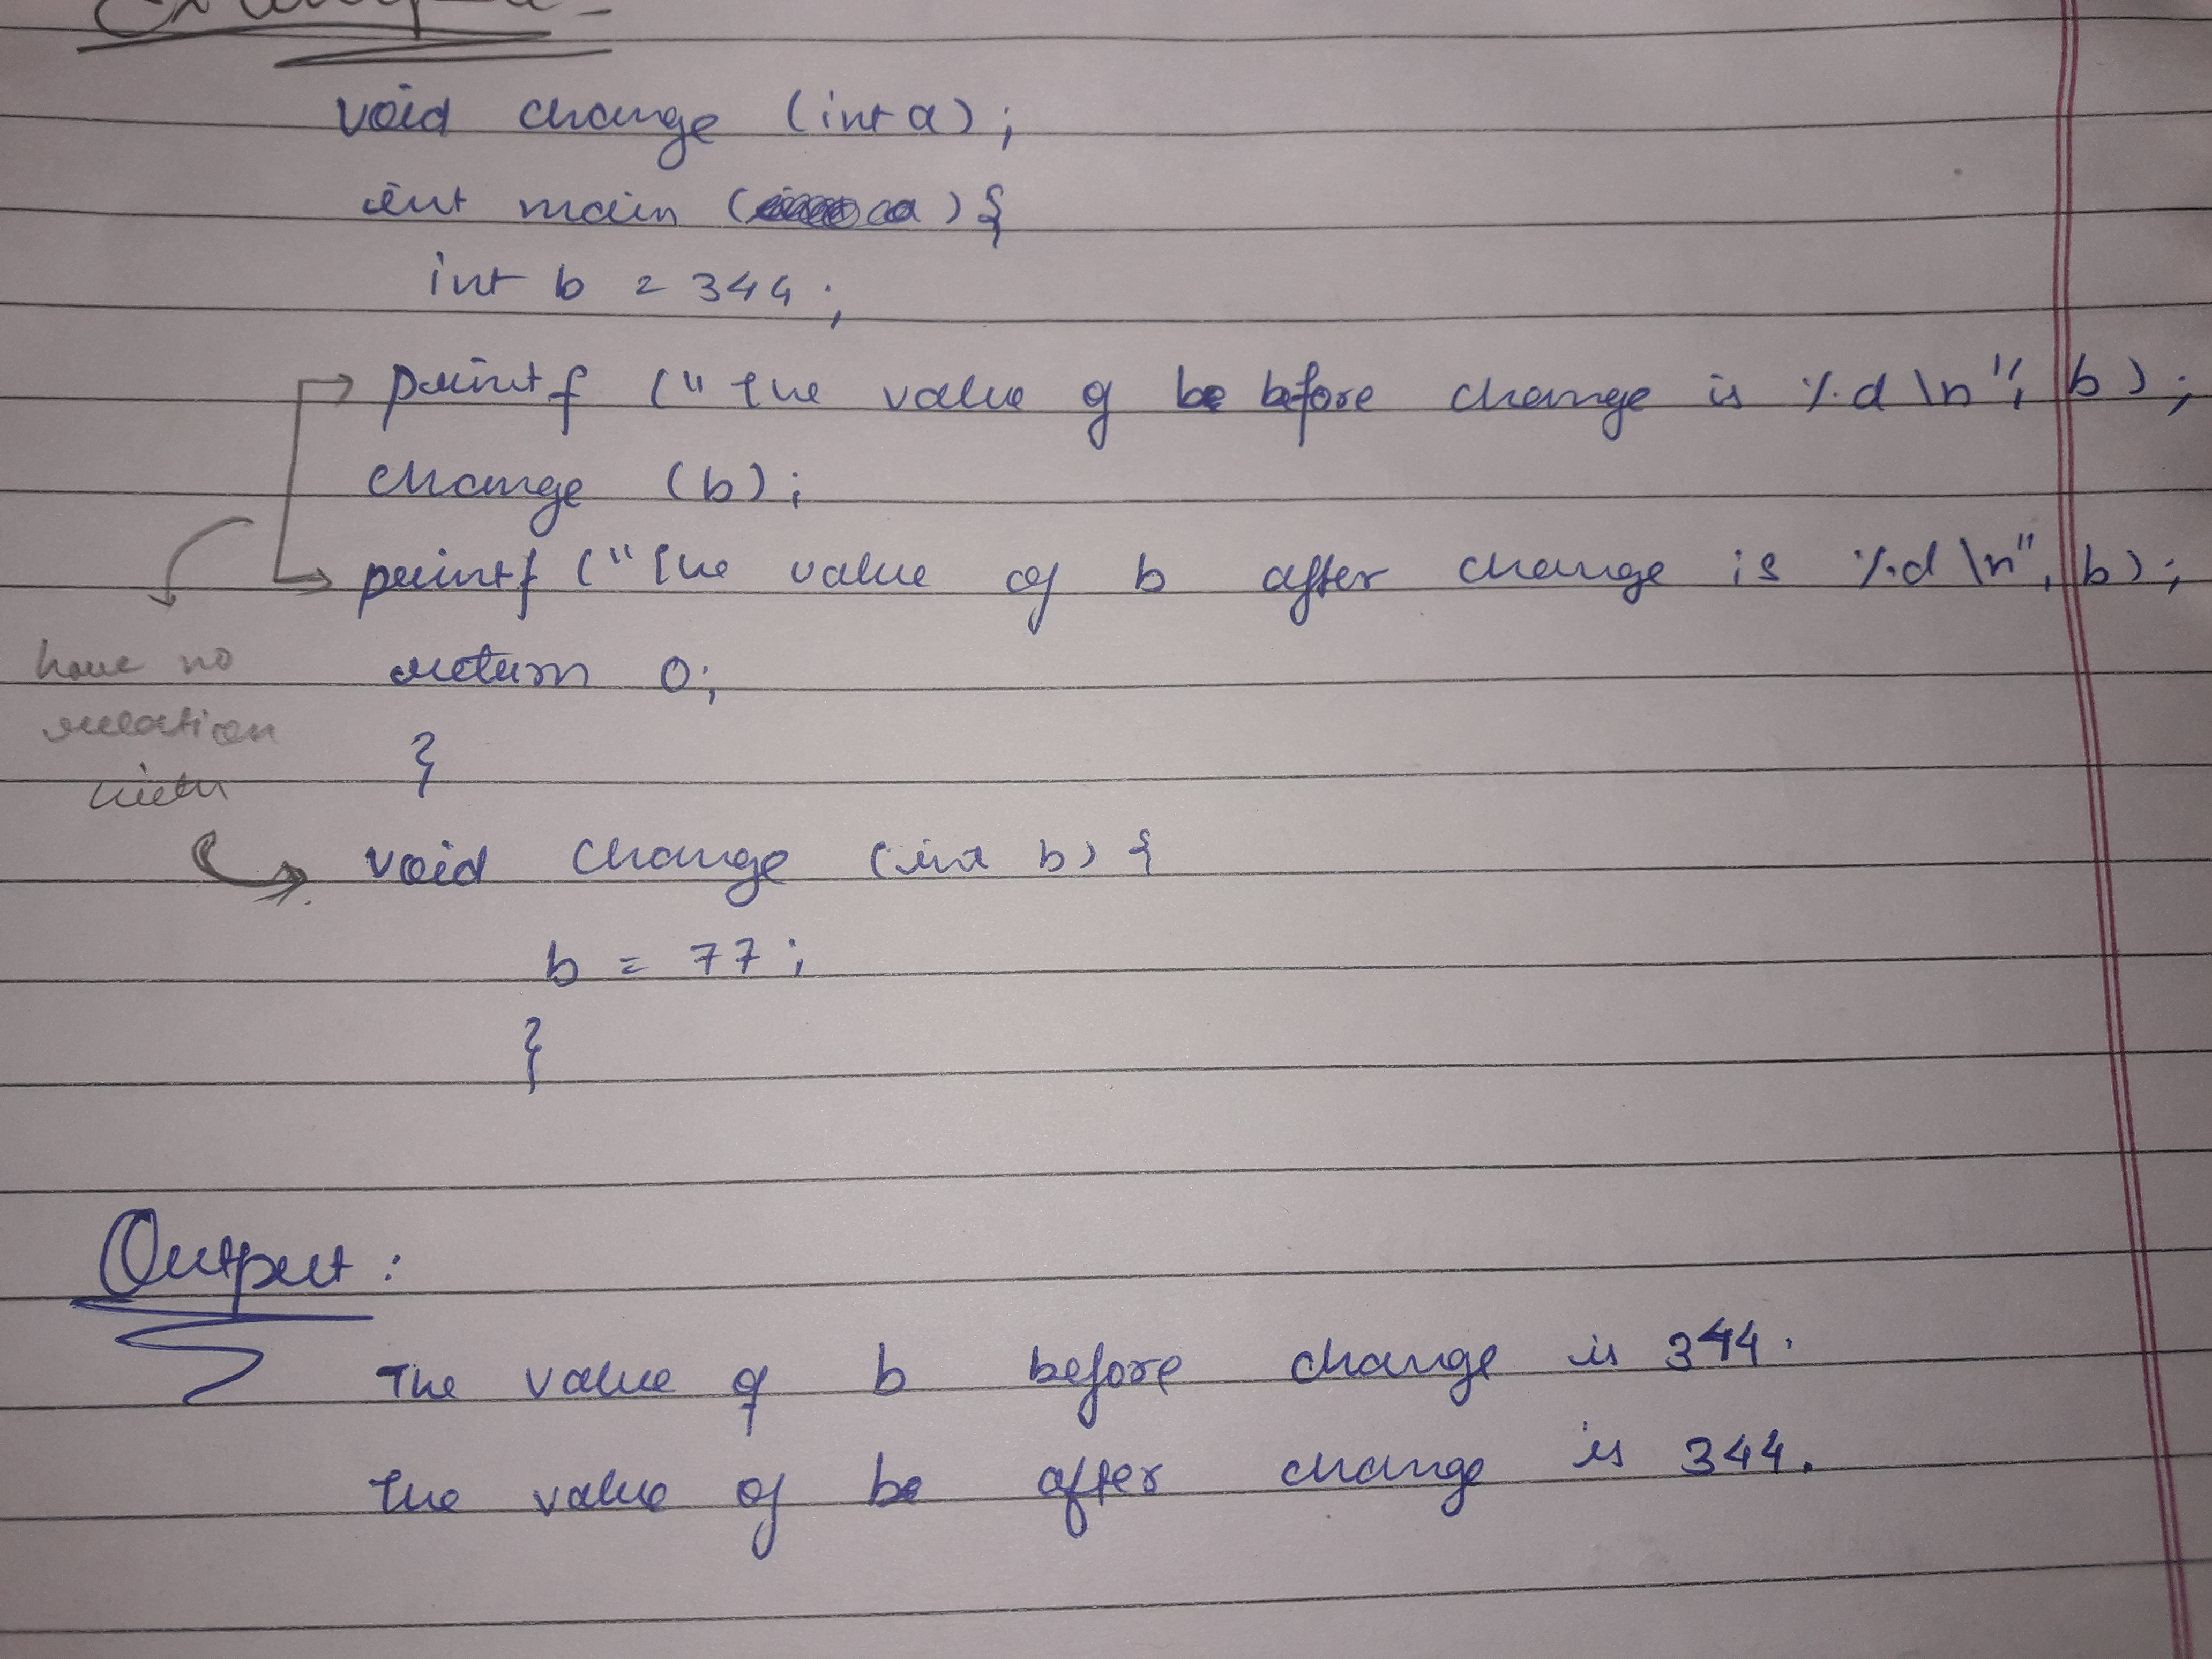 Example :-
void change (int a);
int main () {
int b = 344;
printf ("the value of b before change is %d\n", b);
change (b);
printf ("The value of b after change is %d\n", b);
return 0;
have no
relation
with
}
void change (int b) {
b = 77;
}
Output :
The value of b before change is 344.
the value of b after change is 344.